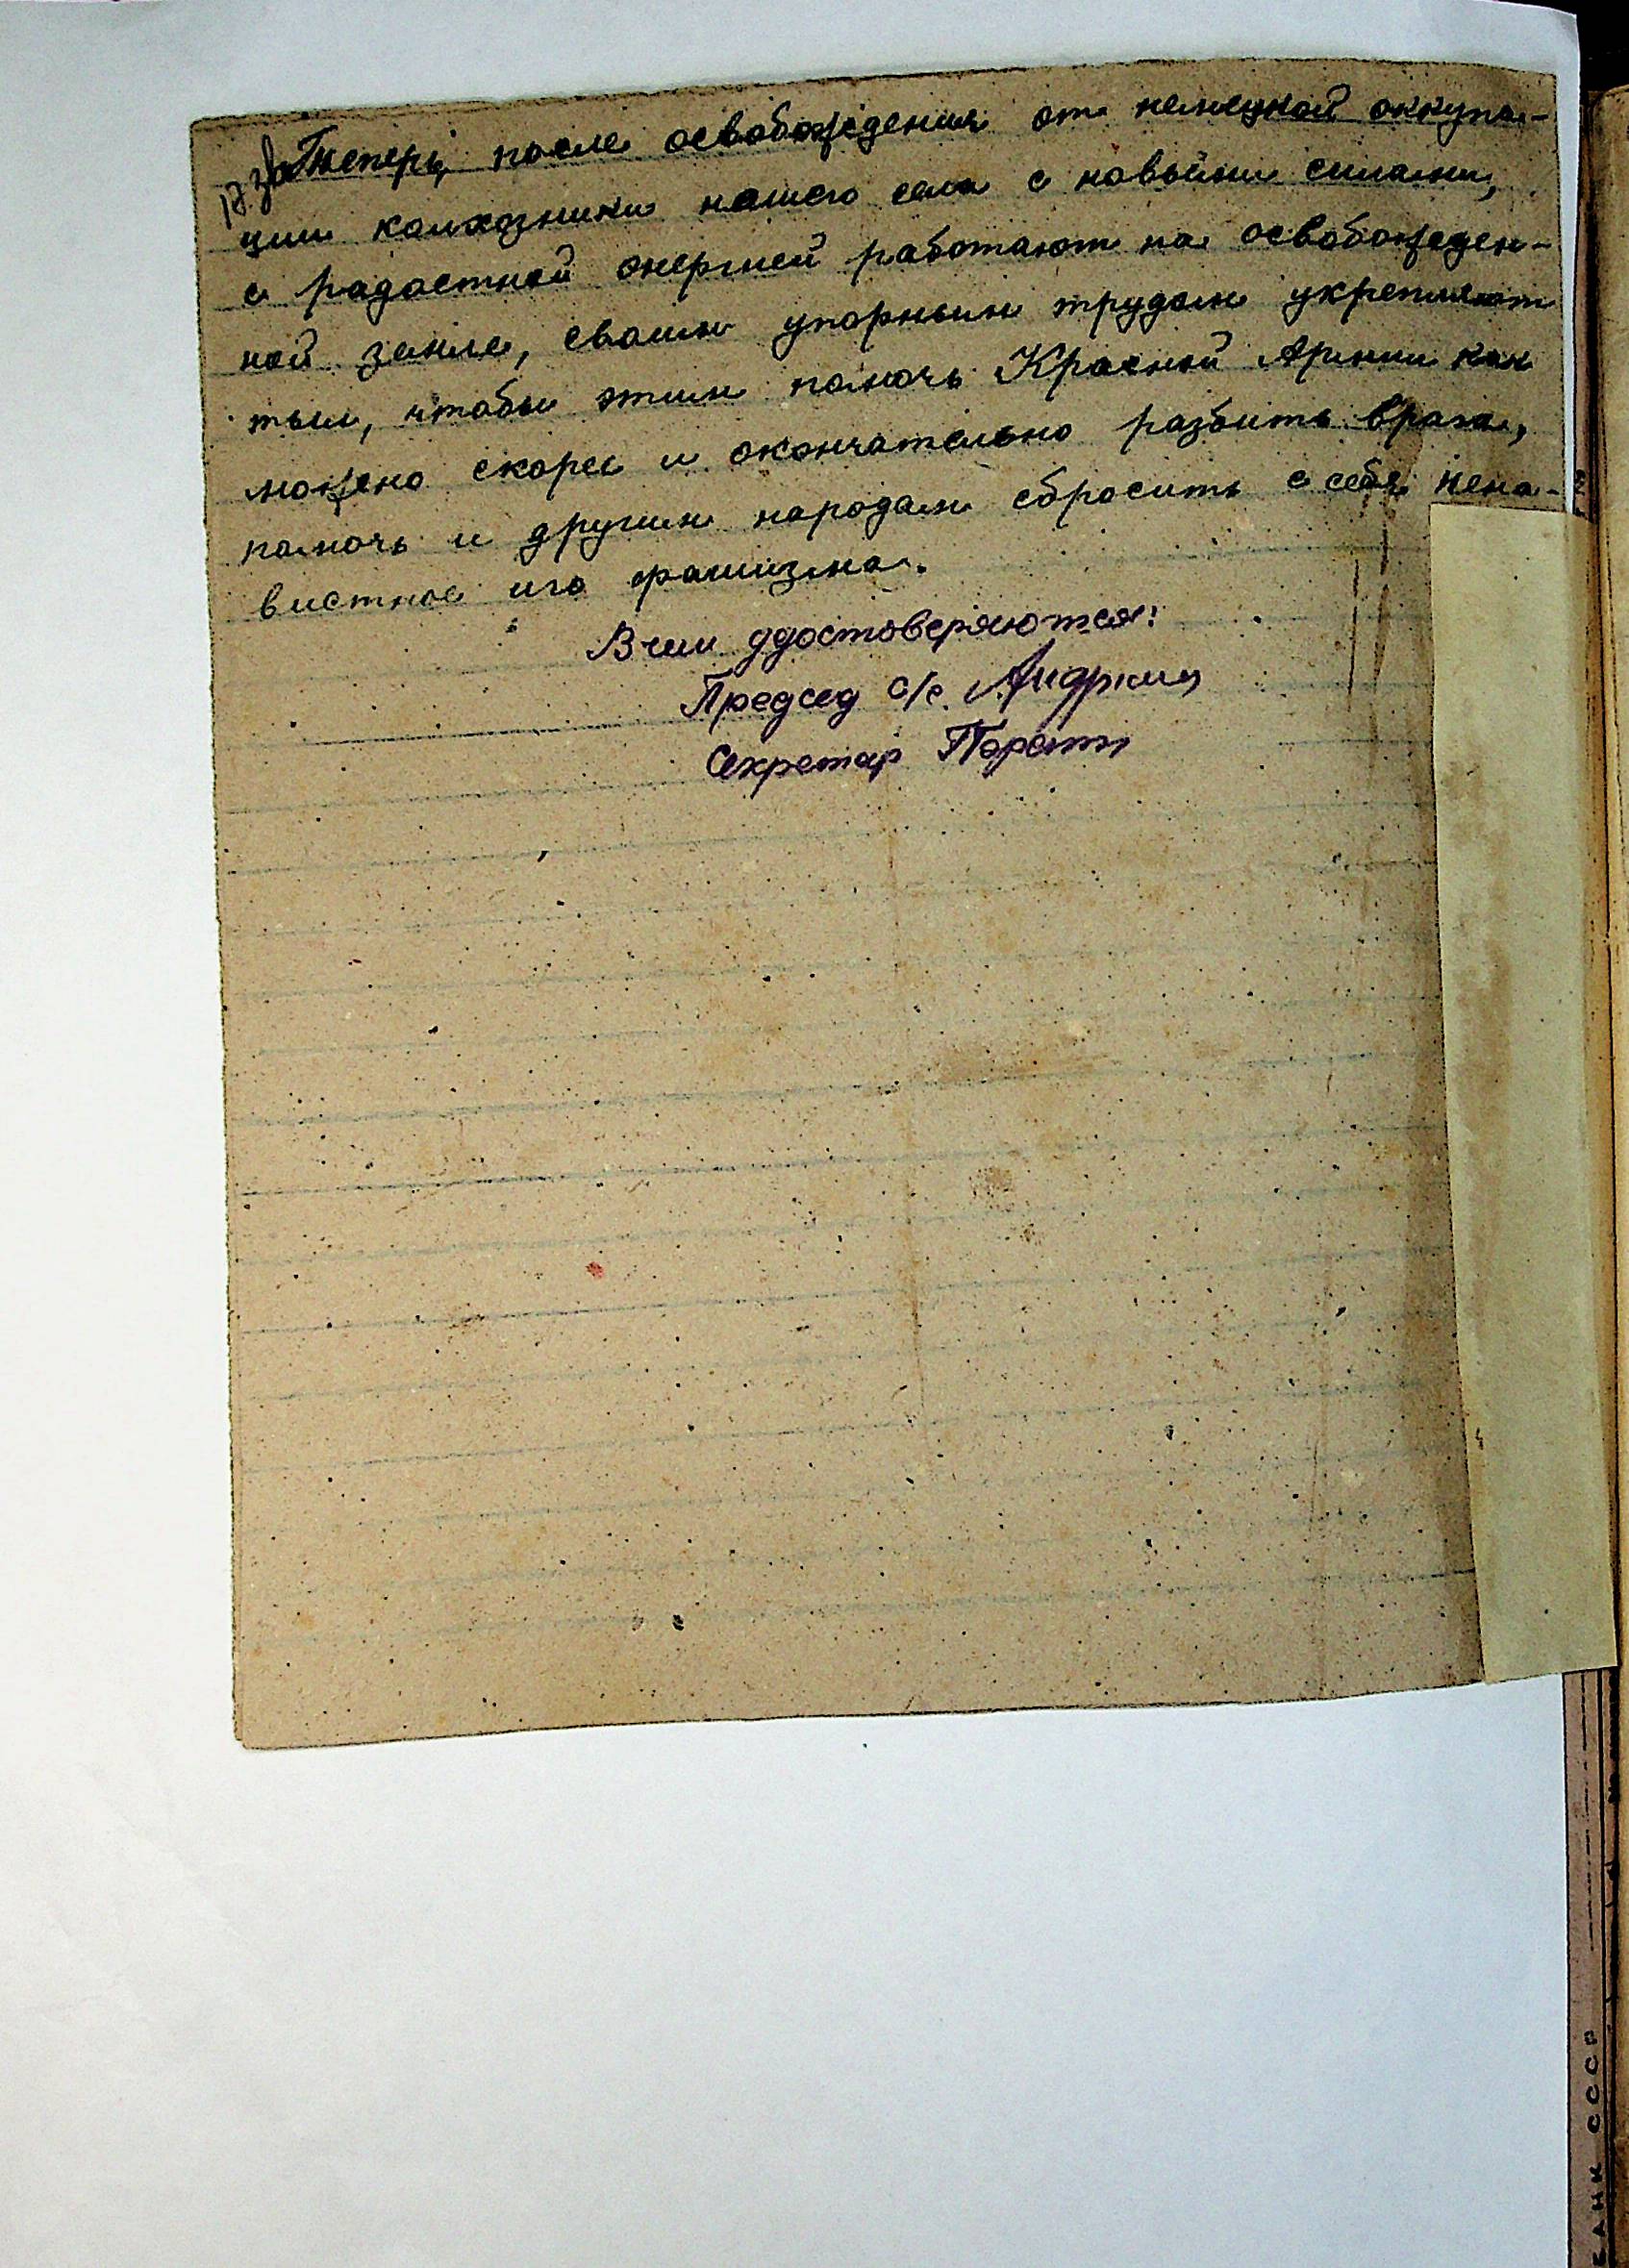 17 зв
Теперь, после освобождения от немецкой оккупа-
ции колхозники нашего села с новыми силами,
с радостной энергией работают на освобожден-
ной земле, своим упорным трудом укрепляют
тыл, чтобы этим помочь Красной Армии как
можно скорее и окончательно разбить врага,
помочь и другим народам сбросить с себя нена-
вистное иго фашизма.
В чем удостоверяются:
Председ с/с.
Секретар
БАНК СССР